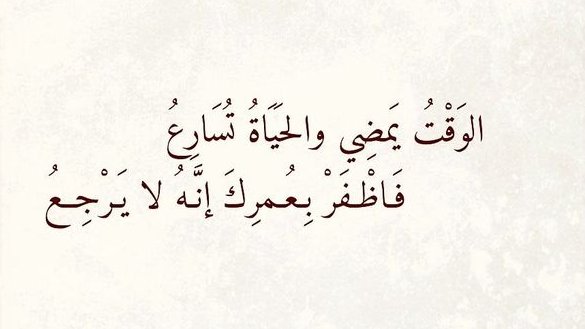 الوَقْتُ يَمضِي والحَيَاةُ تُسَارِعُ
فَاظْفَرْ بِعُمرِكَ إنَّهُ لا يَرْجِعُ